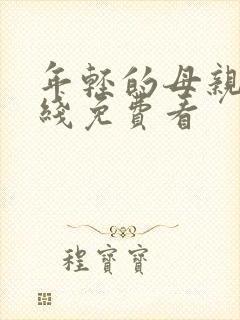 年轻的母親
綫免費看
程寶寶